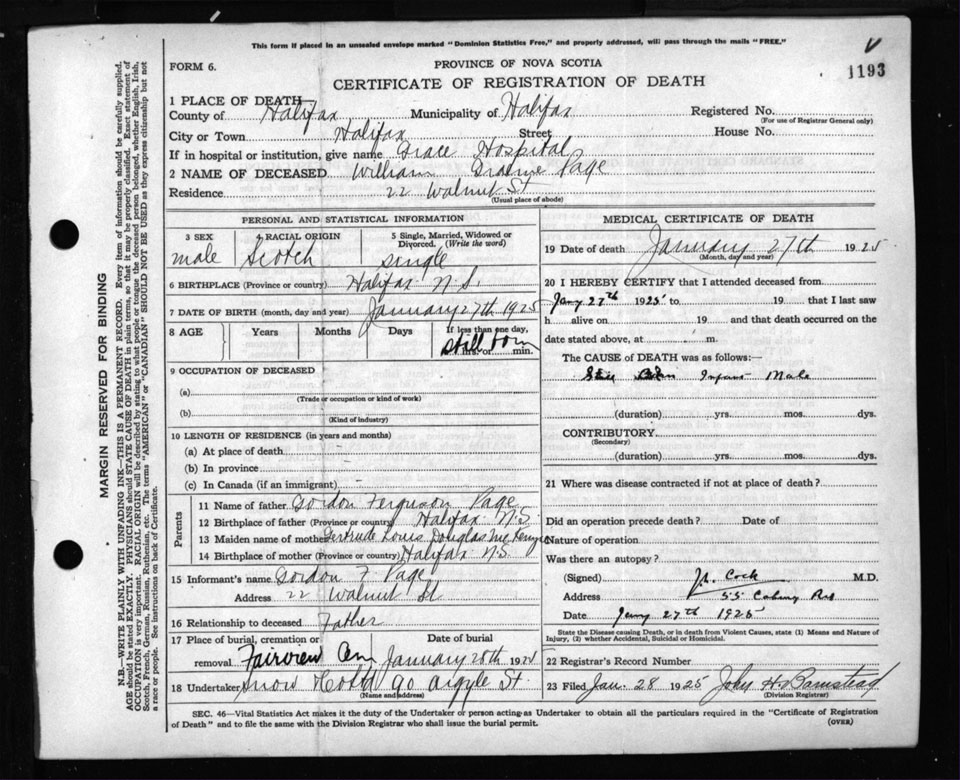 This form if placed in an unsealed envelope marked "Dominion Statistics Free," and properly addressed, will pass through the mails "FREE."
V
1193
FORM 6.
PROVINCE OF NOVA SCOTIA
CERTIFICATE OF REGISTRATION OF DEATH
1 PLACE OF DEATH
County of Halifax Municipality of Halifax Registered No.
(For use of Registrar General only)
City or Town Halifax Street House No.
If in hospital or institution, give name Grace Hospital
2 NAME OF DECEASED William Graeme Page
Residence 22 Walnut St
(Usual place of abode)
PERSONAL AND STATISTICAL INFORMATION
3 SEX 4 RACIAL ORIGIN 5 Single, Married, Widowed or
Divorced. (Write the word)
male Scotch single
6 BIRTHPLACE (Province or country) Halifax N.S.
7 DATE OF BIRTH (month, day and year) January 27th 1925
8 AGE Years Months Days If less than one day,
still born
hrs. or min.
9 OCCUPATION OF DECEASED
(a)
(Trade or occupation or kind of work)
(b)
(Kind of industry)
10 LENGTH OF RESIDENCE (in years and months)
(a) At place of death
(b) In province
(c) In Canada (if an immigrant)
Parents
11 Name of father Gordon Ferguson Page
12 Birthplace of father (Province or country) Halifax N.S.
13 Maiden name of mother Gertrude Louis Douglas
14 Birthplace of mother (Province or country) Halifax N.S.
15 Informant's name Gordon F Page
Address 22 Walnut St
16 Relationship to deceased Father
17 Place of burial, cremation or Date of burial
removal Fairview Cem January 28th 192
18 Undertaker Snow 90 Argyle St
(Name and address)
MEDICAL CERTIFICATE OF DEATH
19 Date of death January 27th 1925
(Month, day and year)
20 I HEREBY CERTIFY that I attended deceased from
Jany 27th 1925 to 19 that I last saw
h alive on 19 and that death occurred on
date stated above, at m.
The CAUSE of DEATH was as follows:
Still Born Infant Male
(duration) yrs. mos. dys.
CONTRIBUTORY
(Secondary)
(duration) yrs. mos. dys.
21 Where was disease contracted if not at place of death?
Did an operation precede death? Date of
Nature of operation
Was there an autopsy?
(Signed) Cock M.D.
Address 55
Date Jany 27th 1925
State the Disease causing Death, or in death from Violent Causes, state (1) Means and Nature of
Injury, (2) whether Accidental, Suicidal or Homicidal.
22 Registrar's Record Number
23 Filed Jan. 28 1925 John H Barnstead
(Division Registrar)
SEC. 46—Vital Statistics Act makes it the duty of the Undertaker or person acting as Undertaker to obtain all the particulars required in the "Certificate of Registration
of Death" and to file the same with the Division Registrar who shall issue the burial permit. (OVER)
MARGIN RESERVED FOR BINDING
N.B.—WRITE PLAINLY WITH UNFADING INK—THIS IS A PERMANENT RECORD. Every item of information should be carefully supplied.
AGE should be stated EXACTLY. PHYSICIANS should STATE CAUSE OF DEATH in plain terms, so that it may be properly classified. Exact statement of
OCCUPATION is very important. RACIAL ORIGIN will be described by stating to what people or tongue the deceased person belonged, whether English, Irish,
Scotch, French, German, Russian, Ruthenian, etc. The terms "AMERICAN" or "CANADIAN" SHOULD NOT BE USED as they express citizenship but not
a race or people. See instructions on back of Certificate.